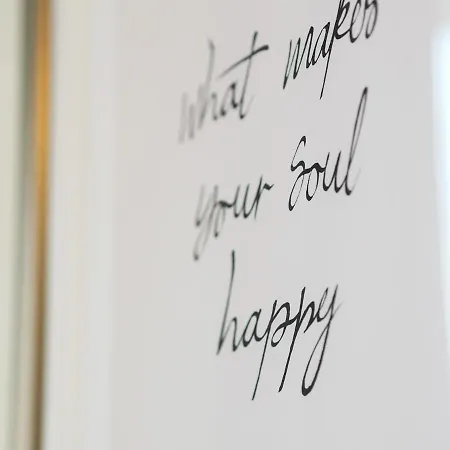 what makes
your soul
happy